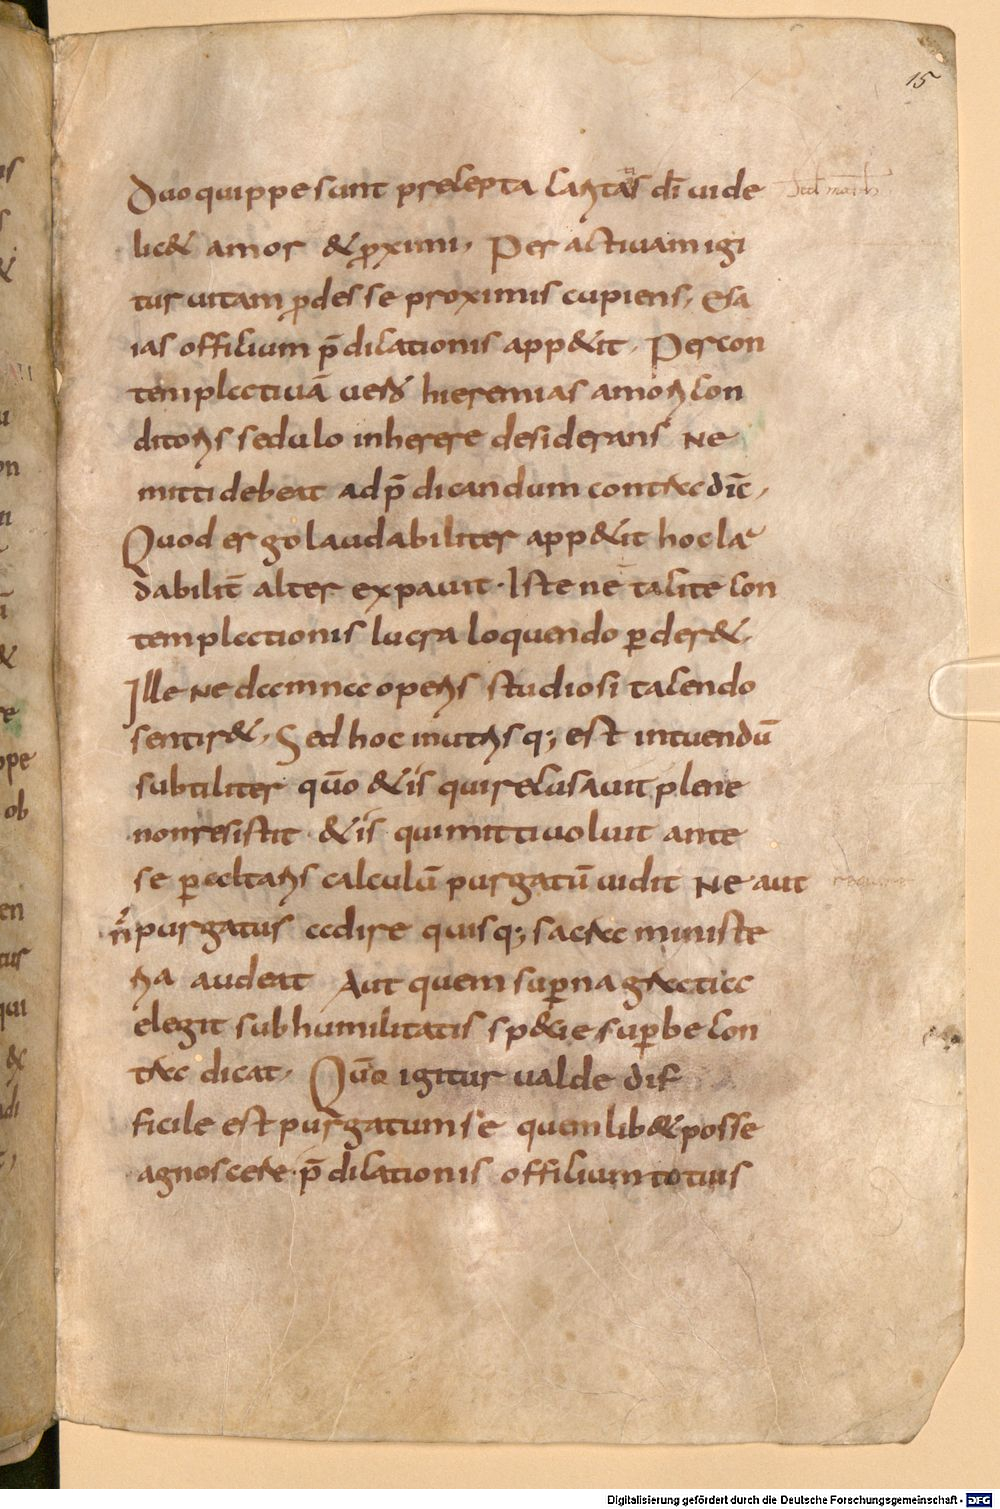 15
Duo quippe sunt precepta caritatis dī uide
lic& amor & ꝓximi. Per actiuam igi
tur uitam ꝓdesse proximis cupiens, esa
ias officium p̄dicationis app&it. Per con
templatiuā uero hieremias amori con
ditoris sedulo inherere desiderans Ne
mitti debeat ad p̄dicandum contradic̄,
Quod ergo laudabiliter app&it hoc lau
dabilit̄ alter expauit. Iste ne tacite con
templationis lucra loquendo ꝑder&,
Ille Ne damna operis studiosi tacendo
sentir&, Sed hoc in utrisq; est intuendū
subtiliter quō & is qui recusauit plene
non resistit & is qui mitti uoluit ante
se ꝑ altaris calculū purgatū uidit Ne aut
n̄ purgatus adire quisq; sacra ministe
ria audeat Aut quem suꝑna gratia
elegit sub humilitatis sp&ie suꝑbe con
tradicat. Quō igitur ualde dif
ficile est purgatum se quemlib& posse
agnoscere. p̄dicationis officium totius
Digitalisierung gefördert durch die Deutsche Forschungsgemeinschaft - DFG